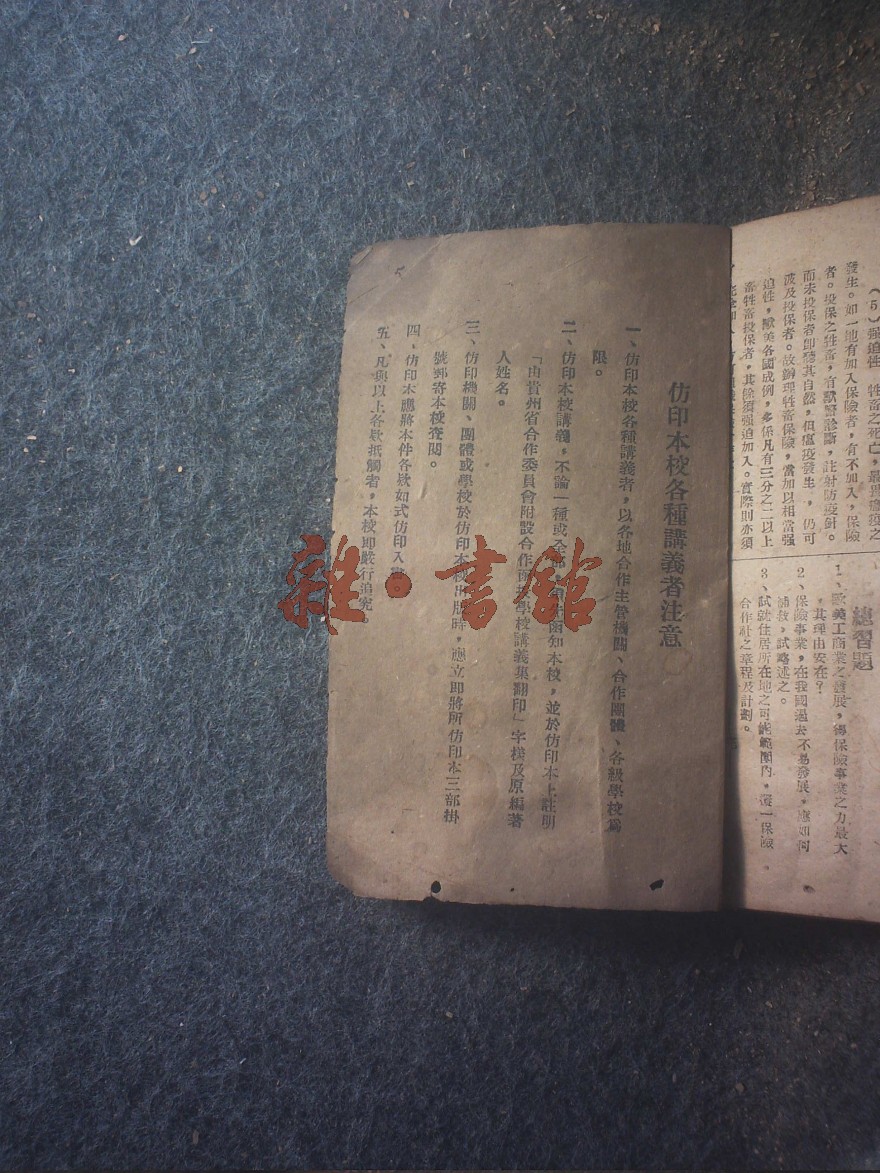 （5）强迫性　牲畜之死亡，最畏瘟疫之
發生。如一地有加入保險者，有不加入，保險
者。投保之牲畜，有獸醫診斷，註射防疫針。
而未投保者即聽其自然，但瘟疫發生，仍可
波及投保者。故辦理牲畜保險，當加以相當强
迫性，歐美各國成例，多係凡有三分之二以上
畜牲畜投保者，其餘須强迫加入。實際則亦須
總習題
1、歐美工商業之發展，得保險事業之力最大
，其理由安在？
2、保險事業，在我國過去不易發展，應如何
補救，試略述之。
3、試就住居所在地之可能範圍內，擬一保險
合作社之章程及計劃。
仿印本校各種講義者注意
一、仿印本校各種講義者，以各地合作主管機關、合作團體、各級學校爲
限。
二、仿印本校講義，不論一種或全部，函知本校，並於仿印本上註明
「由貴州省合作委員會附設合作函授學校講義集翻印」字樣及原編著
人姓名。
三、仿印機關、團體或學校於仿印本校出版時，應立即將所仿印本三部掛
號郵寄本校查閱。
四、仿印本應將本件各欵如式仿印入
五、凡與以上各欵抵觸者，本校即嚴行追究。
雜·書館